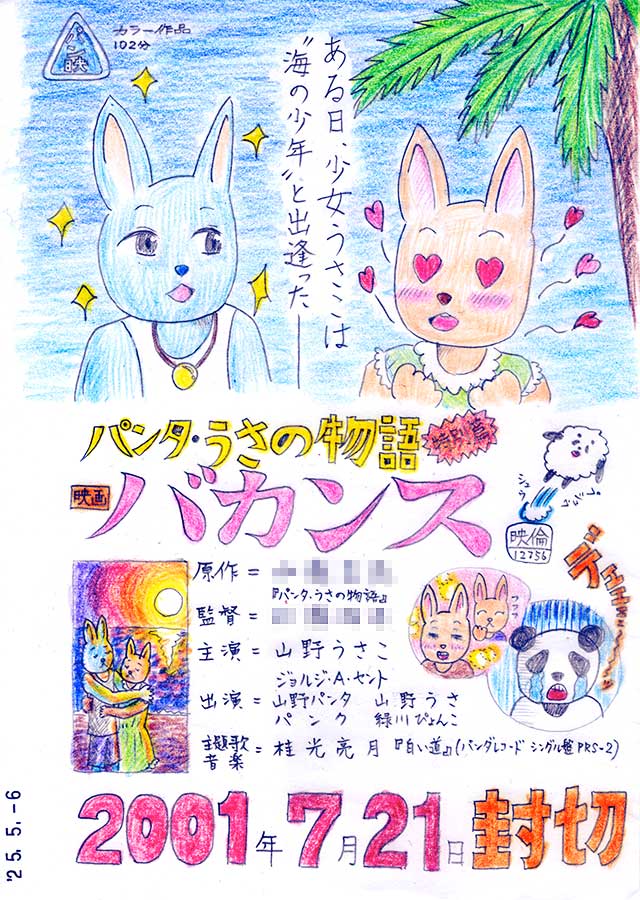 パン映
カラー作品
102分
ある日、少女うさこは
〝海の少年〟と出逢った——
パンタ・うさの物語
特別篇
映画
バカンス
シュウ
プップ
映倫
12756
デェェェェーーン
原作=
『パンタ・うさの物語』
監督=
主演=山野うさこ
ジョルジ・A・セント
出演=山野パンタ 山野うさ
パンク 緑川ぴょんこ
フフフ
主題歌
音楽=桂光亮月『白い道』(パンダレコード シングル盤 PRS-2)
2001年7月21日封切
'25.5.-6